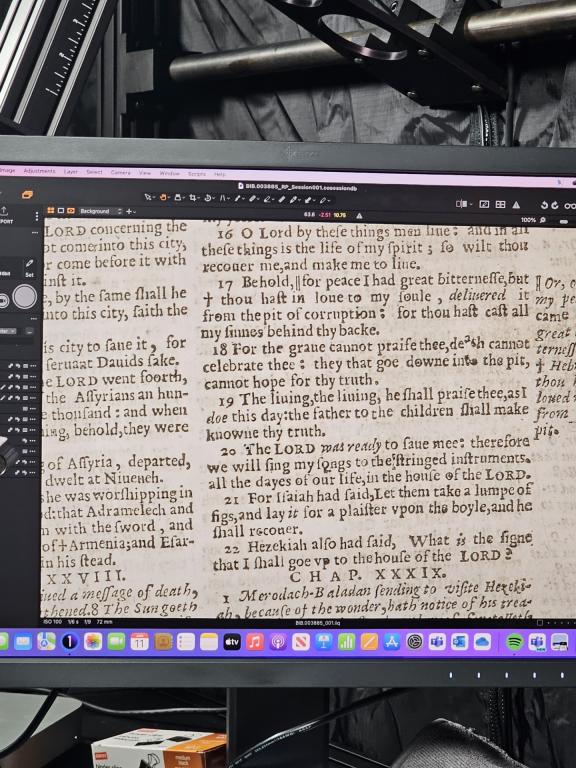 Image Adjustments Layer Select Camera View Window Scripts Help
BIB.003885_RP_Session001.cosessiondb
Background
63.6 -2.51 10.75
100%
PORT
Set
LORD concerning the
ot come into this city,
r come before it with
inſt it.
e, by the ſame ſhall he
into this city, ſaith the
is city to ſaue it, for
ſeruant Dauids ſake.
e LORD went foorth,
the Aſſyrians an hun-
e thouſand : and when
ing, behold, they were
of Aſſyria, departed,
dwelt at Nineueh.
he was worſhipping in
d: that Adramelech and
n with the ſword , and
of † Armenia; and Eſar-
in his ſtead.
XXVIII.
iued a meſſage of death,
thened. 8 The Sun goeth
16 O Lord by theſe things men liue : and in all
theſe things is the life of my ſpirit ; ſo wilt thou
recouer me, and make me to liue.
17 Behold, ‖ for peace I had great bitterneſſe, but
† thou haſt in loue to my ſoule , deliuered it
from the pit of corruption : for thou haſt caſt all
my ſinnes behind thy backe.
18 For the graue cannot praiſe thee, death cannot
celebrate thee : they that goe downe into the pit,
cannot hope for thy truth.
19 The liuing, the liuing, he ſhall praiſe thee, as I
doe this day: the father to the children ſhall make
knowne thy truth.
20 The LORD was ready to ſaue mee: therefore
we will ſing my ſongs to the ſtringed inſtruments,
all the dayes of our life, in the houſe of the LORD.
21 For Iſaiah had ſaid, Let them take a lumpe of
figs, and lay it for a plaiſter vpon the boyle, and he
ſhall recouer.
22 Hezekiah alſo had ſaid, What is the ſigne
that I ſhall goe vp to the houſe of the LORD?
CHAP. XXXIX.
1 Merodach-Baladan ſending to viſite Hezeki-
ah, becauſe of the wonder, hath notice of his trea-
‖ Or, o
my pe
came
great
terneſſ
† Heb
thou h
loued
from
pit.
ISO 100 1/6 s f/9 72 mm
BIB.003885_001.iiq
11
tv